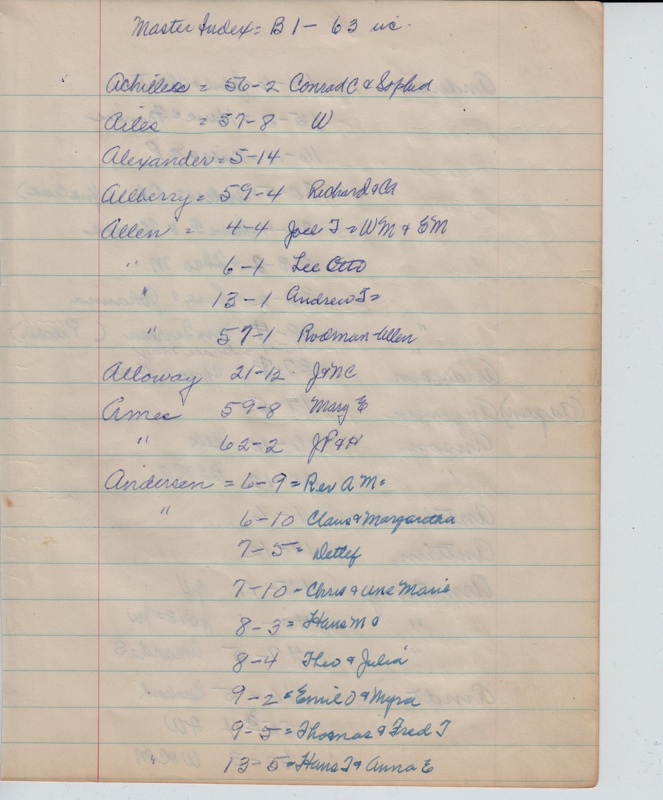 Master Index = B 1 - 63 inc.
Achilles = 56-2 Conrad C & Sophed
Ailes = 57-8 W
Alexander = 5-14
Allberry = 59-4 Richard & CA
Allen = 4-4 Joel T = WM & EM
" 6-1 Lee Otto
" 13-1 Andrew J =
" 57-1 Rodman-Allen
Alloway 21-12 J & NC
Ames 59-8 Mary E
" 62-2 JP & H
Andersen = 6-9 = Rev A M =
" 6-10 Claus & Margaretha
7-5 = Detlef
7-10 - Chris & Ane Marie
8-3 = Hans M =
8-4 Theo & Julia
9-2 = Emil O & Myra
9-5 = Thomas & Fred T
13-5 = Hans J & Anna E